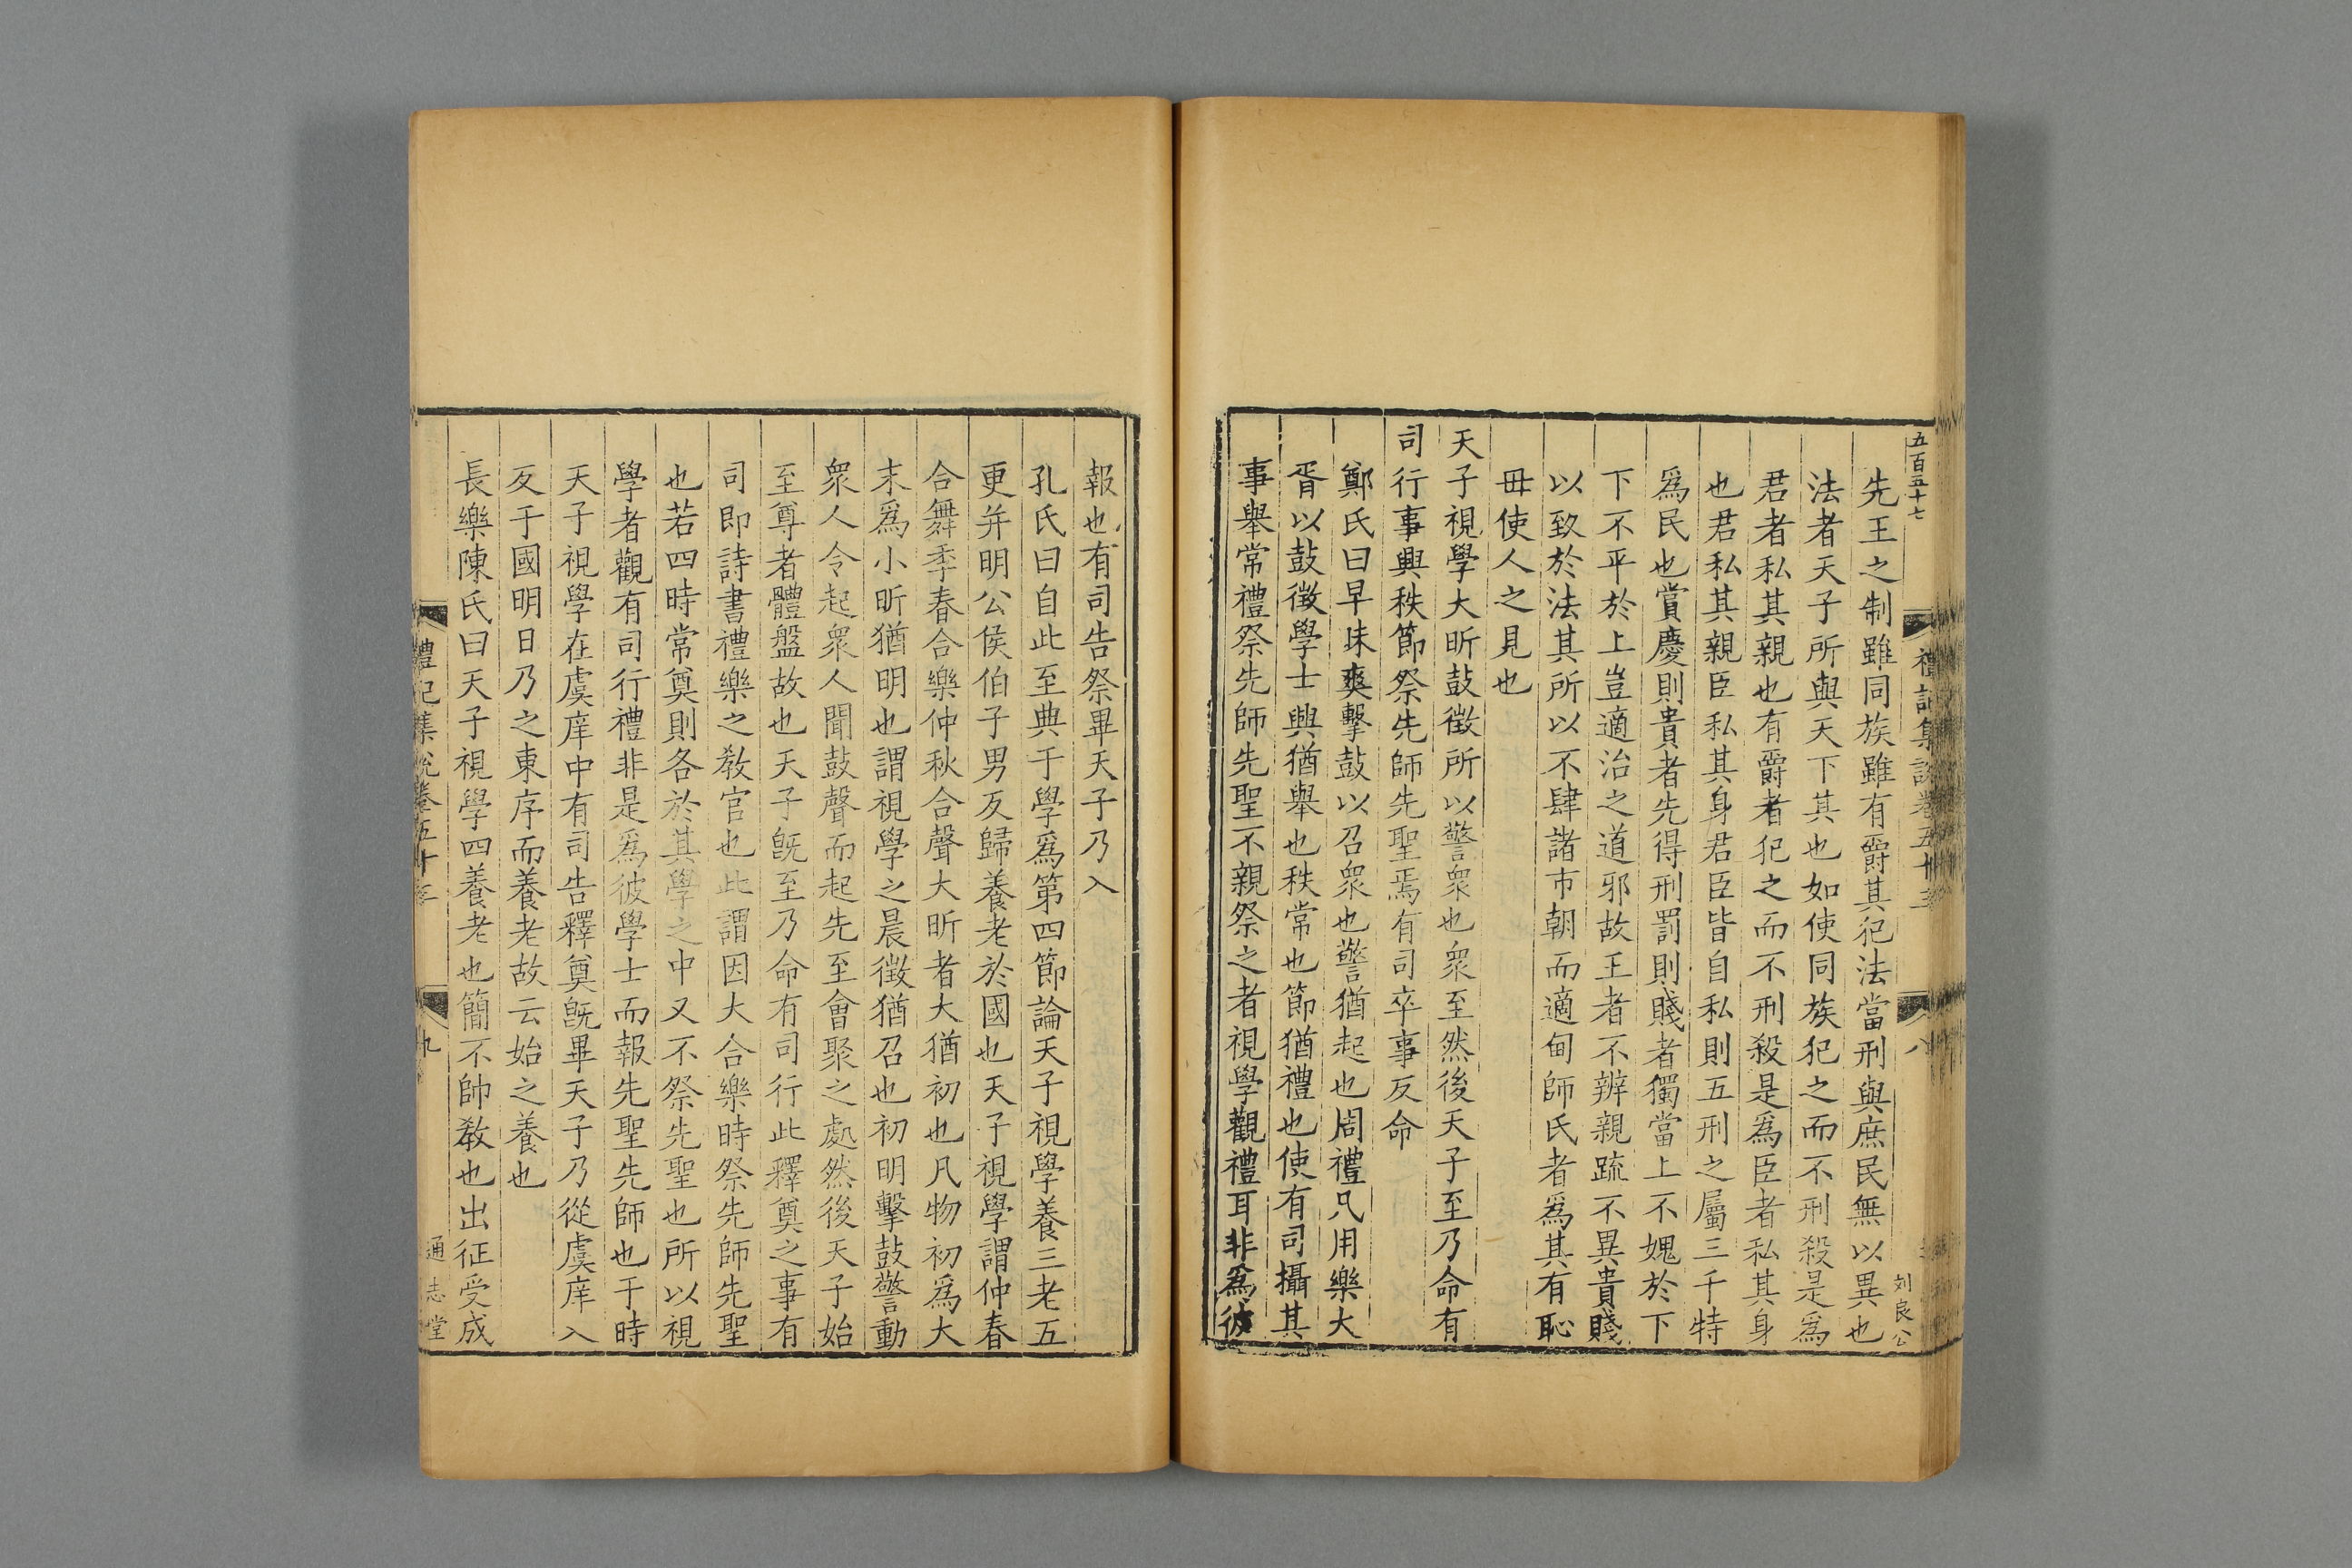 五百五十七
禮記集說卷五十三
八
刘良公
先王之制雖同族雖有爵其犯法當刑與庶民無以異也
法者天子所與天下其也如使同族犯之而不刑殺是爲
君者私其親也有爵者犯之而不刑殺是爲臣者私其身
也君私其親臣私其身君臣皆自私則五刑之屬三千特
爲民也賞慶則貴者先得刑罰則賤者獨當上不媿於下
下不平於上豈適治之道邪故王者不辨親疏不異貴賤
以致於法其所以不肆諸市朝而適甸師氏者爲其有恥
毋使人之見也
天子視學大昕鼓徵所以警衆也衆至然後天子至乃命有
司行事興秩節祭先師先聖焉有司卒事反命
鄭氏曰早昧爽擊鼓以召衆也警猶起也周禮凡用樂大
胥以鼓徵學士興猶舉也秩常也節猶禮也使有司攝其
事舉常禮祭先師先聖不親祭之者視學觀禮耳非爲彼
報也有司告祭畢天子乃入
孔氏曰自此至典于學爲第四節論天子視學養三老五
更并明公侯伯子男反歸養老於國也天子視學謂仲春
合舞季春合樂仲秋合聲大昕者大猶初也凡物初爲大
末爲小昕猶明也謂視學之晨徵猶召也初明擊鼓警動
衆人令起衆人聞鼓聲而起先至會聚之處然後天子始
至尊者體盤故也天子旣至乃命有司行此釋奠之事有
司即詩書禮樂之教官也此謂因大合樂時祭先師先聖
也若四時常奠則各於其學之中又不祭先聖也所以視
學者觀有司行禮非是爲彼學士而報先聖先師也于時
天子視學在虞庠中有司告釋奠旣畢天子乃從虞庠入
反于國明日乃之東序而養老故云始之養也
長樂陳氏曰天子視學四養老也簡不帥教也出征受成
禮記集說卷五十三
九
通志堂